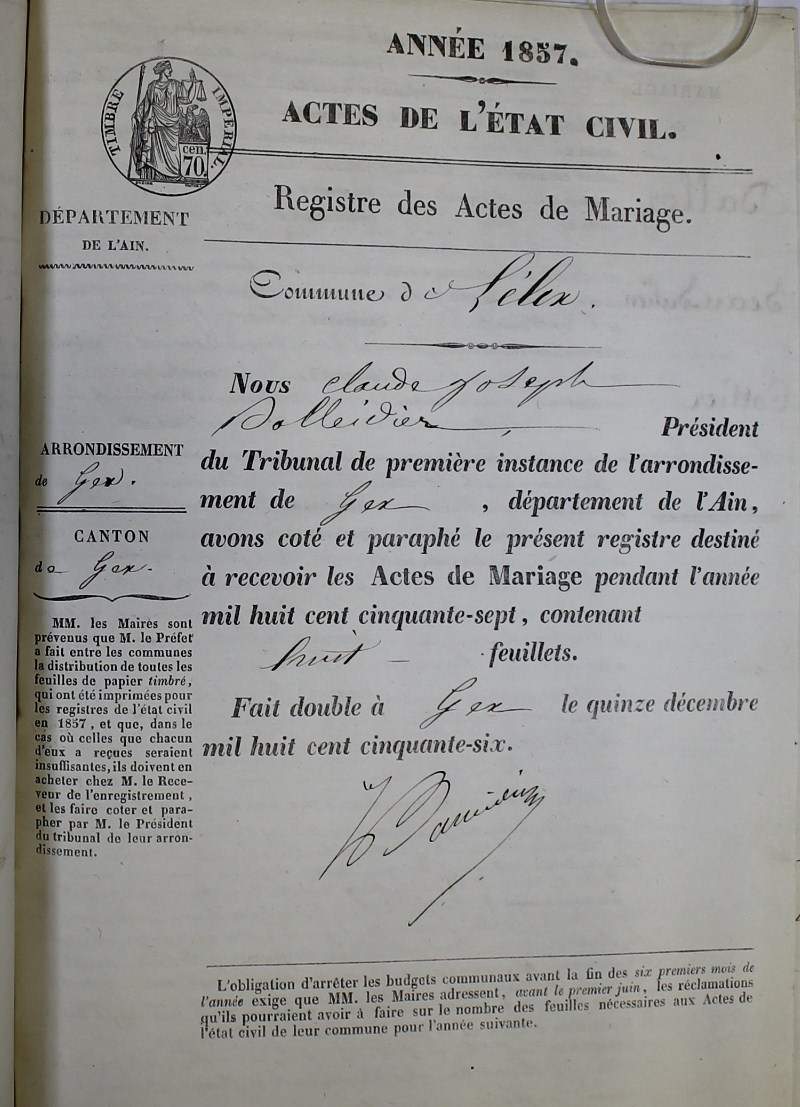 ANNÉE 1857.
ACTES DE L'ÉTAT CIVIL.
TIMBRE IMPERIAL.
cen.
70.
Registre des Actes de Mariage.
DÉPARTEMENT
DE L'AIN.
Commune d Lélex.
Nous Claude Joseph
Président
du Tribunal de première instance de l'arrondisse-
ment de Gex, département de l'Ain,
avons coté et paraphé le présent registre destiné
à recevoir les Actes de Mariage pendant l'année
mil huit cent cinquante-sept, contenant
huit feuillets.
Fait double à Gex le quinze décembre
mil huit cent cinquante-six.
ARRONDISSEMENT
de Gex.
CANTON
de Gex.
MM. les Maires sont
prévenus que M. le Préfet
a fait entre les communes
la distribution de toutes les
feuilles de papier timbré,
qui ont été imprimées pour
les registres de l'état civil
en 1857, et que, dans le
cas où celles que chacun
d'eux a reçues seraient
insuffisantes, ils doivent en
acheter chez M. le Rece-
veur de l'enregistrement,
et les faire coter et para-
pher par M. le Président
du tribunal de leur arron-
dissement.
L'obligation d'arrêter les budgets communaux avant la fin des six premiers mois de
l'année exige que MM. les Maires adressent, avant le premier juin, les réclamations
qu'ils pourraient avoir à faire sur le nombre des feuilles nécessaires aux Actes de
l'état civil de leur commune pour l'année suivante.